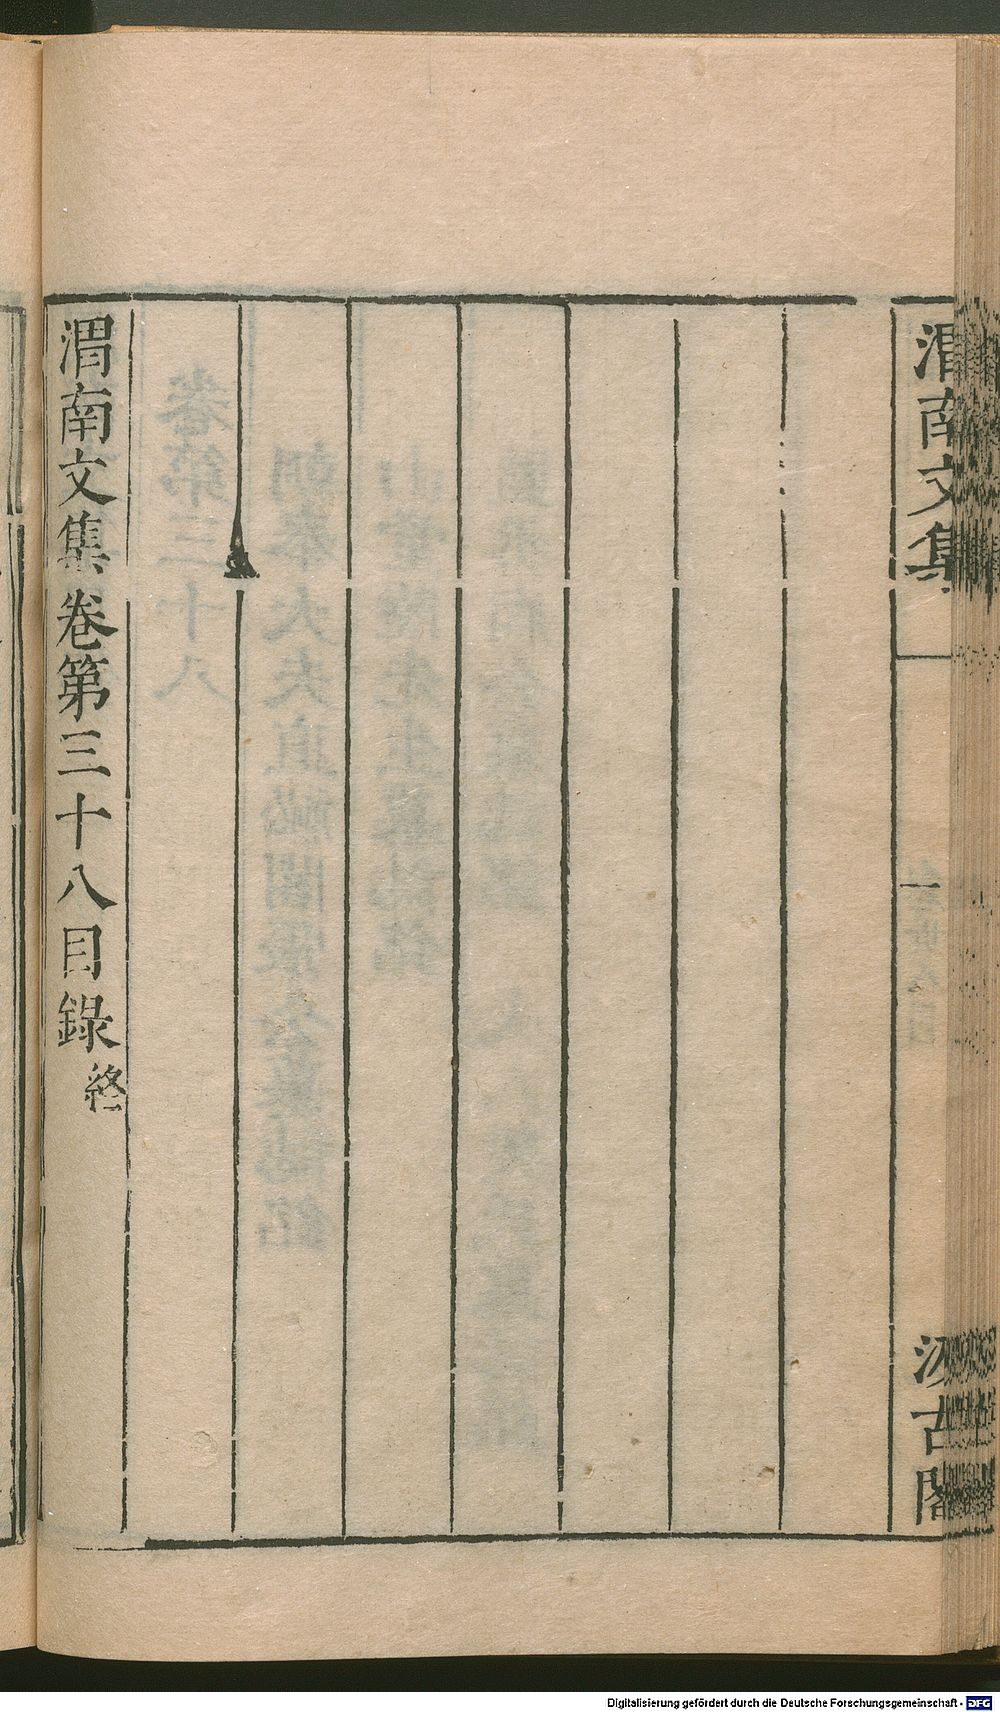 渭南文集
一
汲古閣
渭南文集卷第三十八目錄終
Digitalisierung gefördert durch die Deutsche Forschungsgemeinschaft - DFG